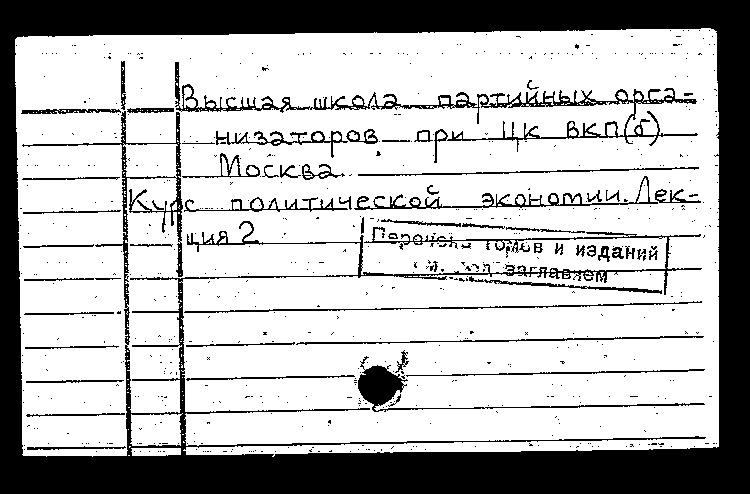 Высшая школа партийных орга-
низаторов при ЦК ВКП(б).
Москва.
Курс политической экономии. Лек-
ция 2
Перечень томов и изданий
см. под заглавием